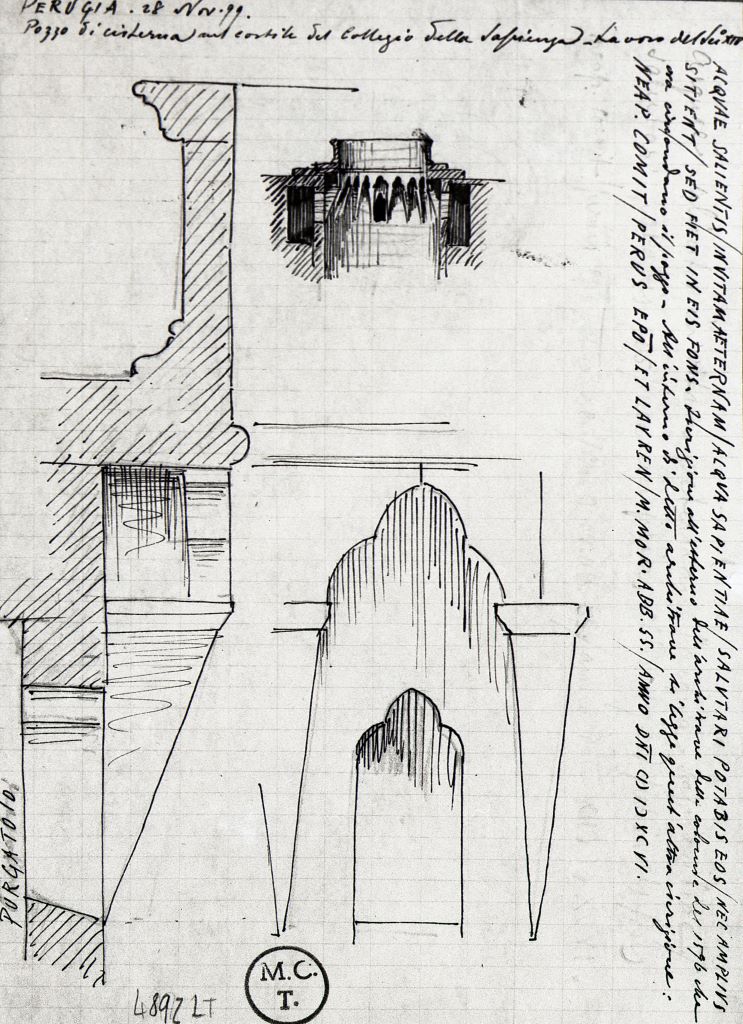 PERUGIA. 28 Nov. 99.
Pozzo di cisterna nel cortile del Collegio della Sapienza - Lavoro del
ALQVAE SALIENTIS / IN VITAM AETERNAM / ALQVA SAPIENTIAE / SALVTARI POTABIS EOS / NEC AMPLIVS
SITIENT / SED FIET IN EIS FONS. Iscrizione all'esterno dell'architrave delle colonne del 1596 che
ora circondano il pozzo - All'interno di detto architrave si legge quest'altra iscrizione:
NEAP. COMIT / PERVS EPŌ / ET LAVREN / M. MOR. ABB. SS. / ANNO DÑI CIƆ IƆ XC VI.
PORGATOIO
M.C.
T.
4892 LT